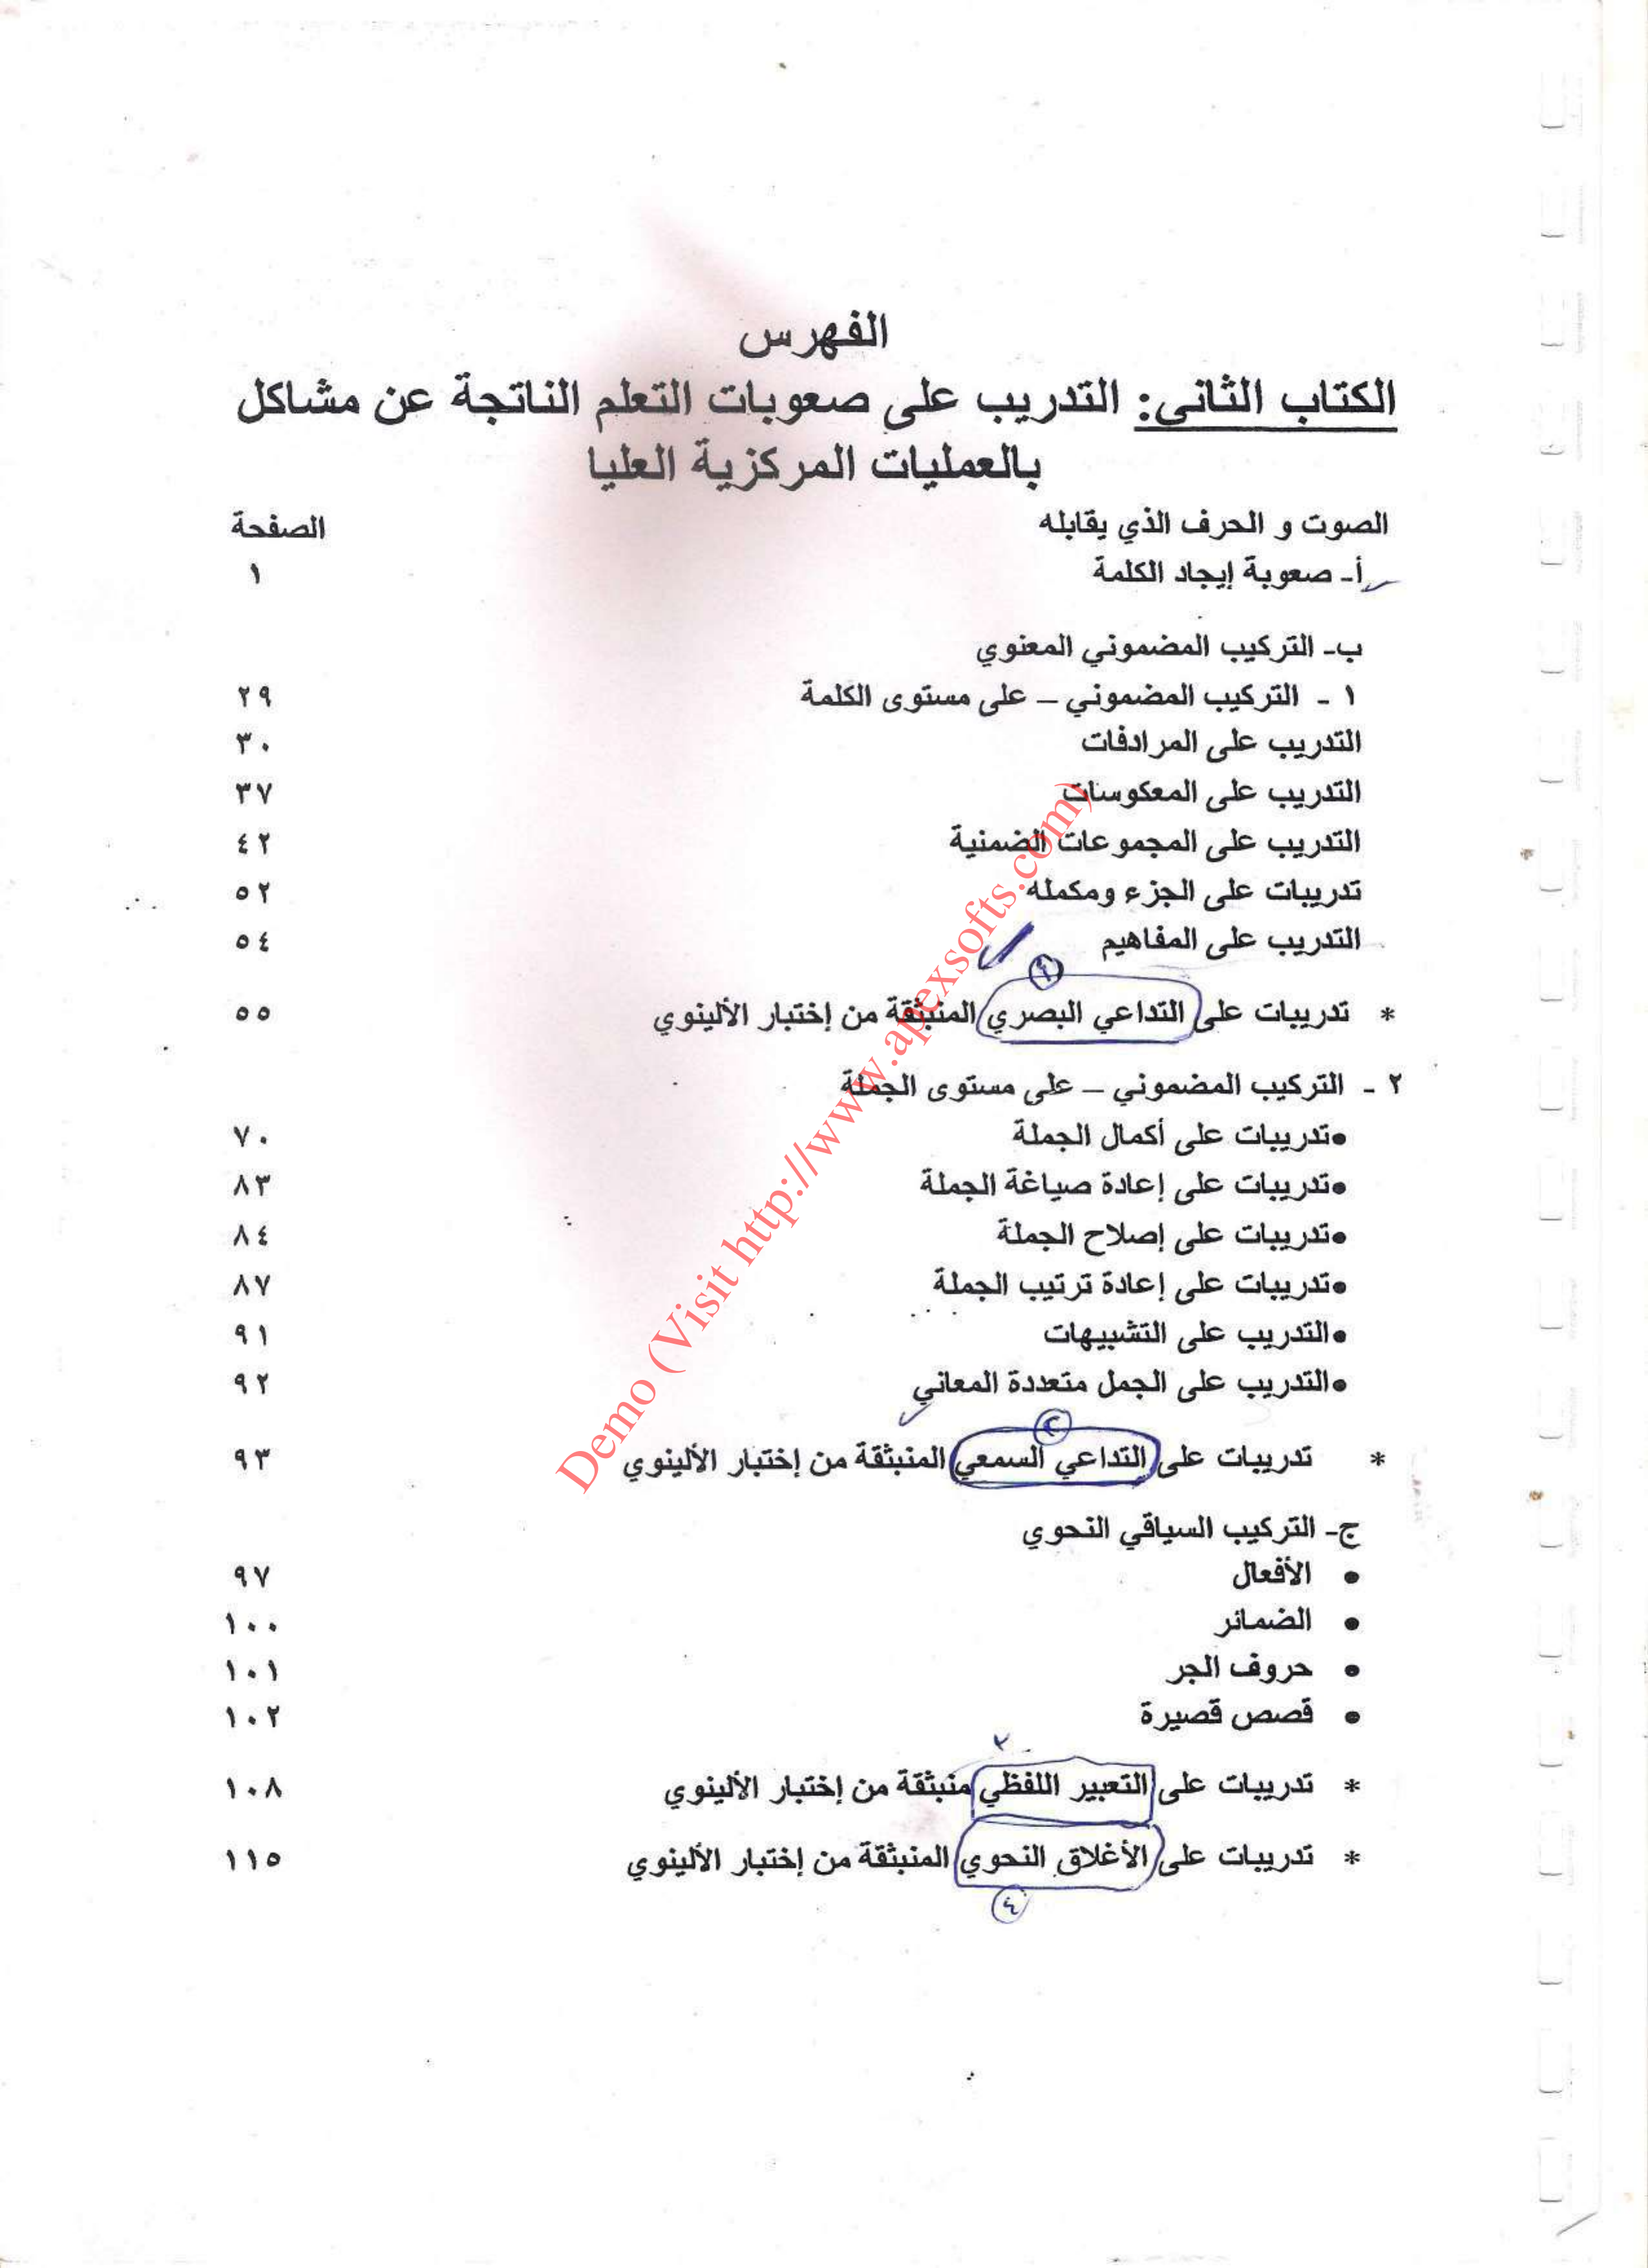 الفهرس
الكتاب الثانى: التدريب على صعوبات التعلم الناتجة عن مشاكل
بالعمليات المركزية العليا
الصوت و الحرف الذي يقابله الصفحة
أ- صعوبة إيجاد الكلمة ١
ب- التركيب المضموني المعنوي
١ - التركيب المضموني – على مستوى الكلمة ٢٩
التدريب على المرادفات ٣٠
التدريب على المعكوسات ٣٧
التدريب على المجموعات الضمنية ٤٢
تدريبات على الجزء ومكمله ٥٢
التدريب على المفاهيم ٥٤
* تدريبات على التداعي البصري المنبثقة من إختبار الألينوي ٥٥
٢ - التركيب المضموني – على مستوى الجملة
•تدريبات على أكمال الجملة ٧٠
•تدريبات على إعادة صياغة الجملة ٨٣
•تدريبات على إصلاح الجملة ٨٤
•تدريبات على إعادة ترتيب الجملة ٨٧
•التدريب على التشبيهات ٩١
•التدريب على الجمل متعددة المعاني ٩٢
٢
* تدريبات على التداعي السمعي المنبثقة من إختبار الألينوي ٩٣
ج- التركيب السياقي النحوي
• الأفعال ٩٧
• الضمائر ١٠٠
• حروف الجر ١٠١
• قصص قصيرة ١٠٢
* تدريبات على التعبير اللفظي منبثقة من إختبار الألينوي ١٠٨
* تدريبات على الأغلاق النحوي المنبثقة من إختبار الألينوي ١١٥
٤
Demo (Visit http://www.apexsofts.com)